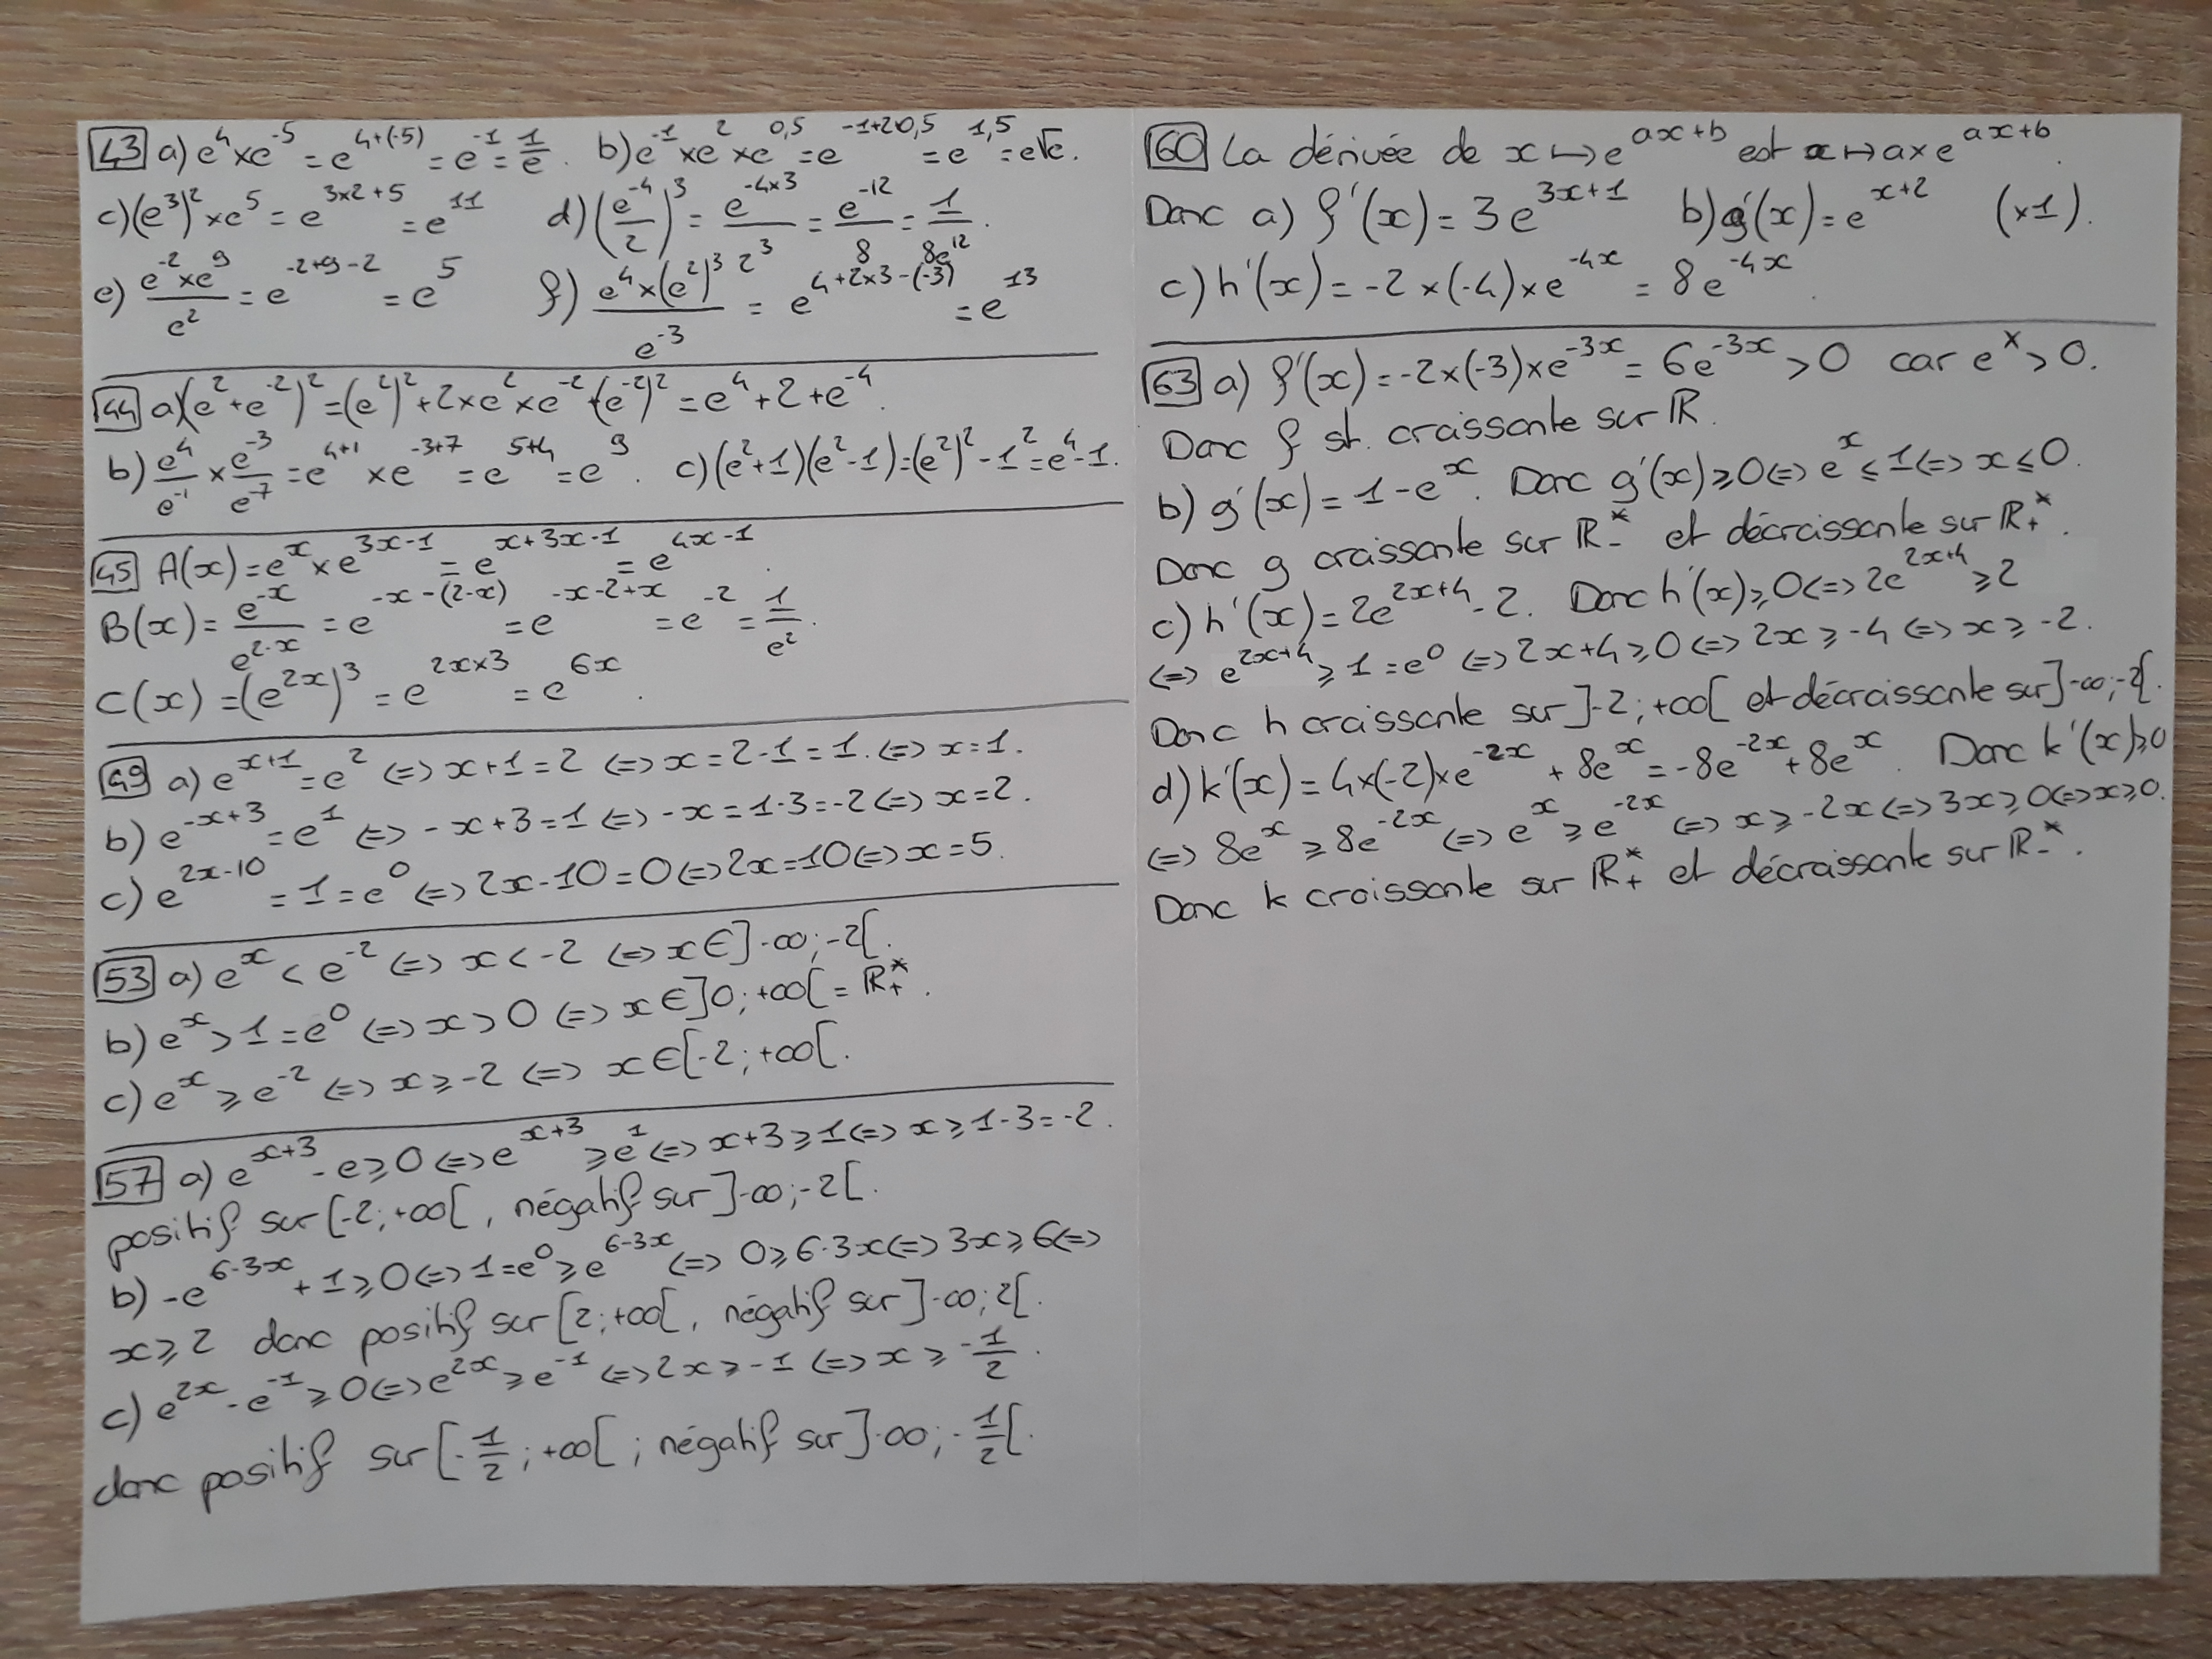 43 a) e⁴ × e⁻⁵ = e^{4+(-5)} = e⁻¹ = 1/e. b) e⁻¹ × e² × e^{0,5} = e^{-1+20,5} = e^{1,5} = e√e.
c) (e³)² × e⁵ = e^{3×2+5} = e¹¹ d) (e⁻⁴/2)³ = e^{-4×3}/2³ = e⁻¹²/8 = 1/8e¹².
e) e⁻² × e⁹/e² = e^{-2+9-2} = e⁵ f) e⁴ × (e²)³/e⁻³ = e^{4+2×3-(-3)} = e¹³
44 a) (e² + e⁻²)² = (e²)² + 2 × e² × e⁻² + (e⁻²)² = e⁴ + 2 + e⁻⁴.
b) e⁴/e⁻¹ × e⁻³/e⁻⁷ = e^{4+1} × e^{-3+7} = e^{5+4} = e⁹. c) (e²+1)(e²-1) = (e²)² - 1² = e⁴ - 1.
45 A(x) = e^x × e^{3x-1} = e^{x+3x-1} = e^{4x-1}.
B(x) = e^{-x}/e^{2-x} = e^{-x-(2-x)} = e^{-x-2+x} = e⁻² = 1/e².
C(x) = (e^{2x})³ = e^{2x×3} = e^{6x}.
49 a) e^{x+1} = e² <=> x+1 = 2 <=> x = 2-1 = 1. <=> x = 1.
b) e^{-x+3} = e¹ <=> -x+3 = 1 <=> -x = 1-3 = -2 <=> x = 2.
c) e^{2x-10} = 1 = e⁰ <=> 2x-10 = 0 <=> 2x = 10 <=> x = 5.
53 a) e^x < e⁻² <=> x < -2 <=> x ∈ ]-∞; -2[.
b) e^x > 1 = e⁰ <=> x > 0 <=> x ∈ ]0; +∞[ = ℝ₊*.
c) e^x ⩾ e⁻² <=> x ⩾ -2 <=> x ∈ [-2; +∞[.
57 a) e^{x+3} - e ⩾ 0 <=> e^{x+3} ⩾ e¹ <=> x+3 ⩾ 1 <=> x ⩾ 1-3 = -2.
positif sur [-2; +∞[, négatif sur ]-∞; -2[.
b) -e^{6-3x} + 1 ⩾ 0 <=> 1 = e⁰ ⩾ e^{6-3x} <=> 0 ⩾ 6-3x <=> 3x ⩾ 6 <=>
x ⩾ 2 donc positif sur [2; +∞[, négatif sur ]-∞; 2[.
c) e^{2x} - e⁻¹ ⩾ 0 <=> e^{2x} ⩾ e⁻¹ <=> 2x ⩾ -1 <=> x ⩾ -1/2.
donc positif sur [-1/2; +∞[; négatif sur ]-∞; -1/2[.
60 La dérivée de x ↦ e^{ax+b} est x ↦ a × e^{ax+b}.
Donc a) f'(x) = 3e^{3x+1} b) g'(x) = e^{x+2} (×1).
c) h'(x) = -2 × (-4) × e^{-4x} = 8e^{-4x}.
63 a) f'(x) = -2 × (-3) × e^{-3x} = 6e^{-3x} > 0 car e^x > 0.
Donc f st. croissante sur ℝ.
b) g'(x) = 1 - e^x. Donc g'(x) ⩾ 0 <=> e^x ⩽ 1 <=> x ⩽ 0.
Donc g croissante sur ℝ₋* et décroissante sur ℝ₊*.
c) h'(x) = 2e^{2x+4} - 2. Donc h'(x) ⩾ 0 <=> 2e^{2x+4} ⩾ 2
<=> e^{2x+4} ⩾ 1 = e⁰ <=> 2x+4 ⩾ 0 <=> 2x ⩾ -4 <=> x ⩾ -2.
Donc h croissante sur ]-2; +∞[ et décroissante sur ]-∞; -2[.
d) k'(x) = 4 × (-2) × e^{-2x} + 8e^x = -8e^{-2x} + 8e^x. Donc k'(x) ⩾ 0
<=> 8e^x ⩾ 8e^{-2x} <=> e^x ⩾ e^{-2x} <=> x ⩾ -2x <=> 3x ⩾ 0 <=> x ⩾ 0.
Donc k croissante sur ℝ₊* et décroissante sur ℝ₋*.